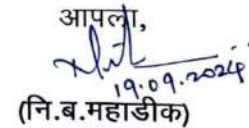 आपला,
19.09.2024
(नि.ब.महाडीक)